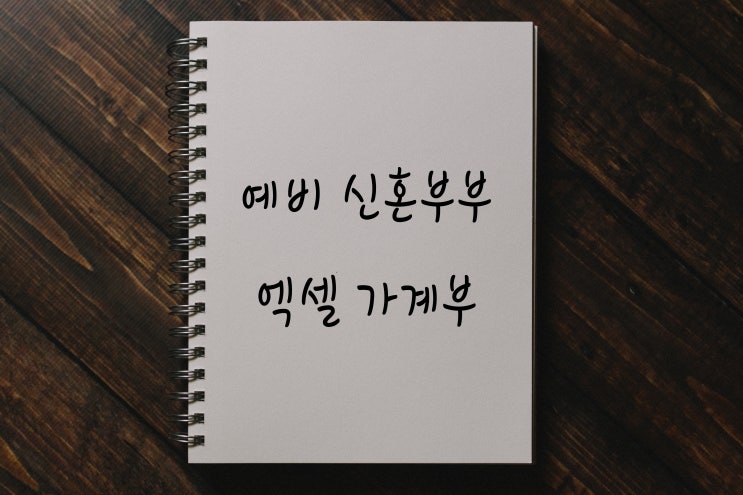 예비 신혼부부
엑셀 가계부